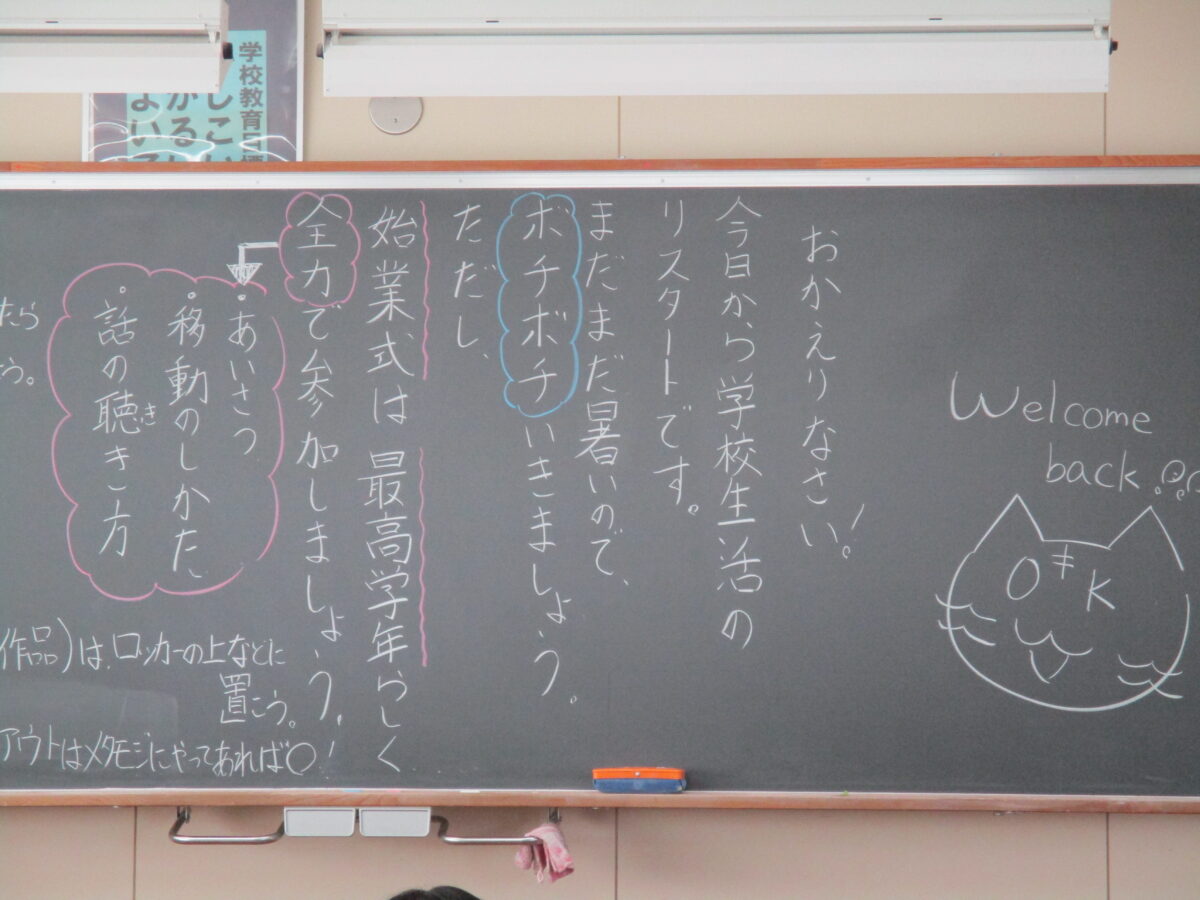 学校教育目標
Welcome
back
OK
おかえりなさい！
今日から学校生活の
リスタートです。
まだまだ暑いので、
ボチボチいきましょう。
ただし、
始業式は最高学年らしく
全力で参加しましょう。！
・あいさつ
・移動のしかた
・話の聴き方
き
たら
う。
作品)は、ロッカーの上などに
置こう。
アウトはメタモジにやってあれば○